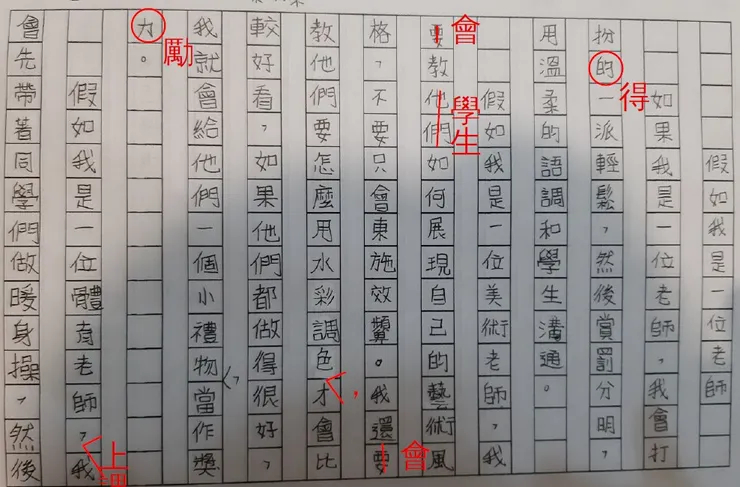 假如我是一位老師
如果我是一位老師，我會打
扮的一派輕鬆，然後賞罰分明，
得
用溫柔的語調和學生溝通。
假如我是一位美術老師，我
要教他們如何展現自己的藝術風
會
學生
格，不要只會東施效顰。我還要
會
教他們要怎麼用水彩調色才會比
，
較好看，如果他們都做得很好，
我就會給他們一個小禮物，當作獎
力。
勵
假如我是一位體育老師，我
上
會先帶著同學們做暖身操，然後